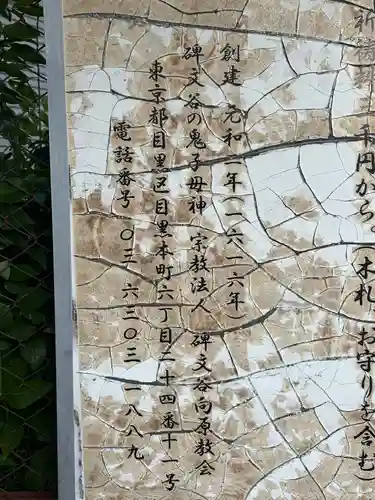 祈祷料 千円から。(木札、お守りを含む
創建 元和二年(一六一六年)
碑文谷の鬼子母神 宗教法人 碑文谷向原教会
東京都目黒区目黒本町六丁目二十四番十一号
電話番号 〇三 六三〇三 一八八九